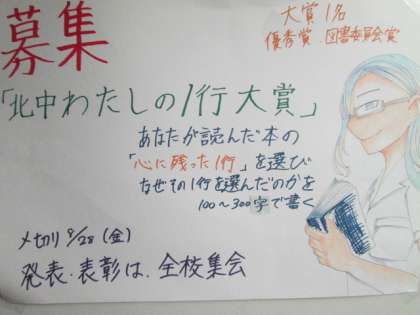 募集
大賞1名
優秀賞.図書委員会賞
「北中わたしの1行大賞」
あなたが読んだ本の
「心に残った1行」を選び
なぜその1行を選んだのかを
100~300字で書く
〆切り 9/28(金)
発表・表彰は、全校集会